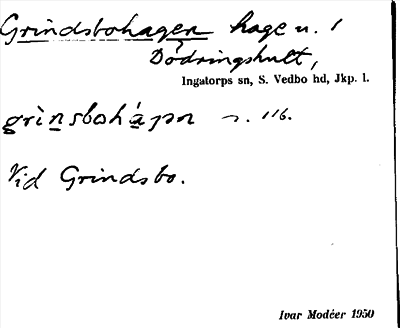 Grindsbohagen hage u. 1
Dödringshult,
Ingatorps sn, S. Vedbo hd, Jkp. l.
grìnsbohágən s. 116.
Vid Grindsbo.
Ivar Modéer 1950